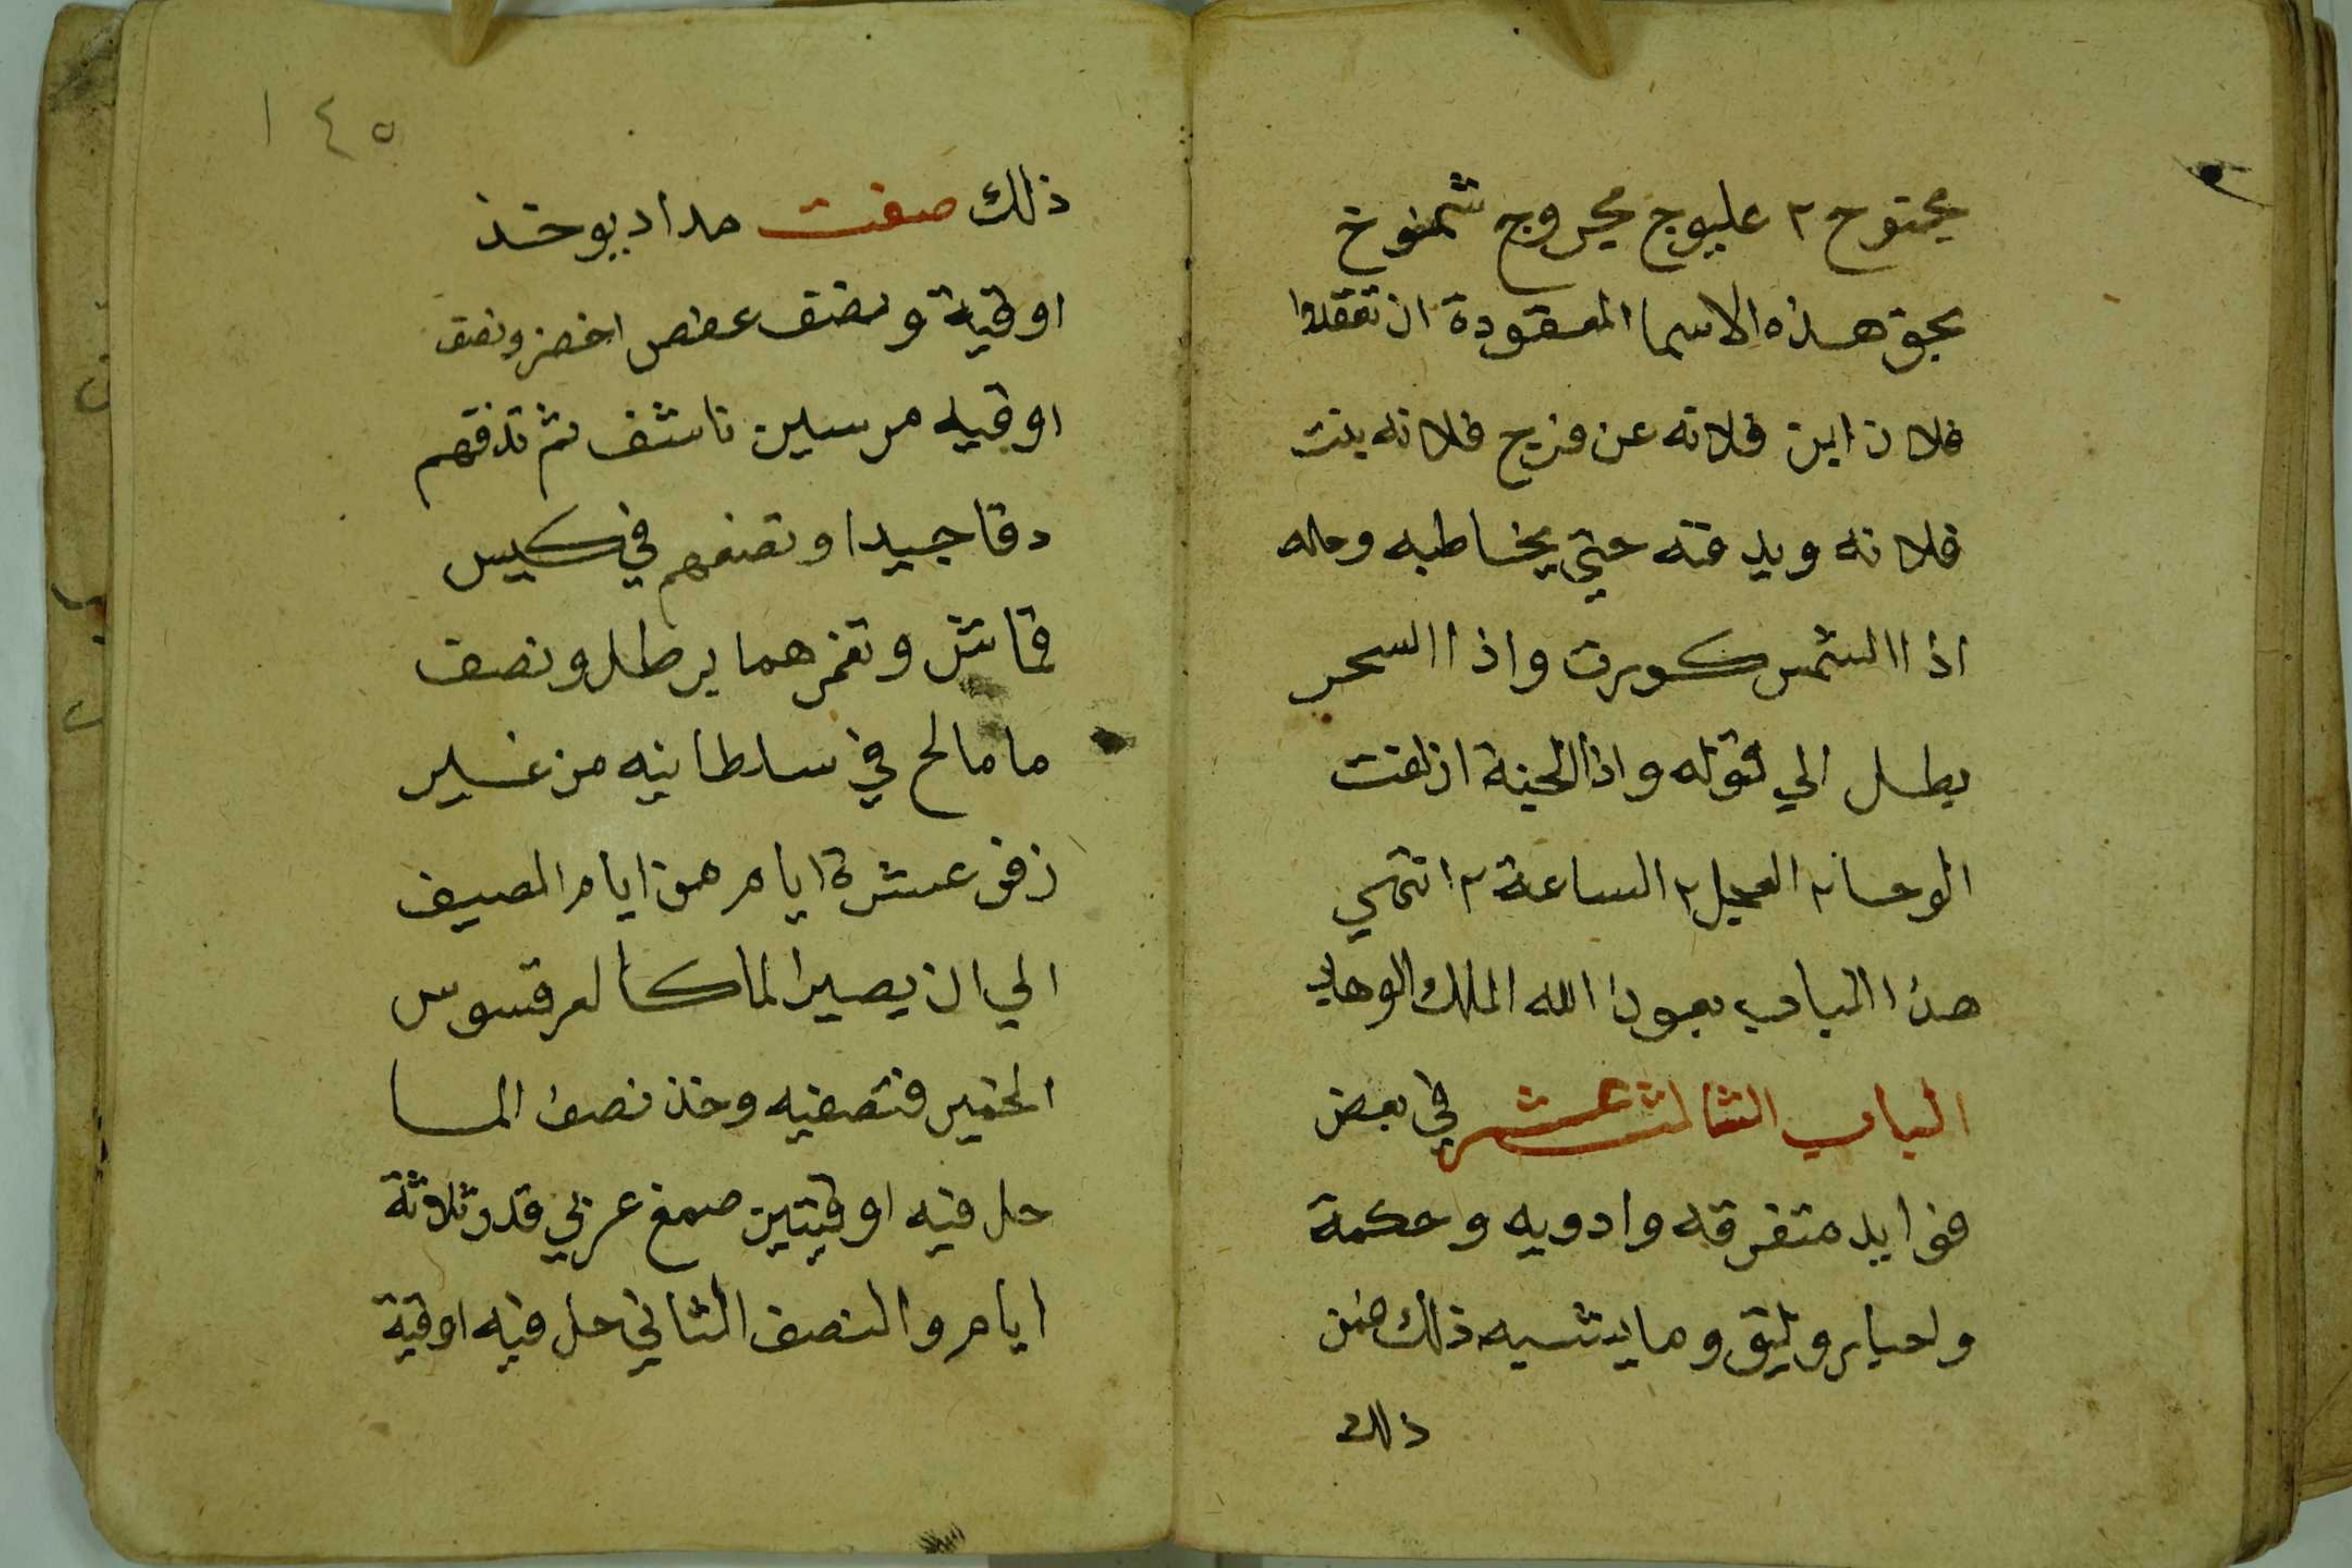 عجتوح ٢ عليوج محروج شمنوخ
بحق هذه الاسما المعقودة ان تعقدوا
فلان ابن فلانه عن فرج فلانه بنت
فلانه ويدفنه حتي يخاطبه وحله
اذا الشمس كورت واذا السحر
بطل الي قوله واذا الجنة ازلفت
الوحا ٢ العجل ٢ الساعة ٢ انتهي
هذا الباب بعون الله الملك الوهاب
الباب الثالث عشر في بعض
فوايد متفرقه وادويه وحكمة
واحبار وليق وما يشبه ذلك فمن
ذلك
١٤٥
ذلك صفت مداد يوخذ
اوقية ونصف عفص اخضر ونصف
اوقيه مرسين ناشف ثم تدقهم
دقا جيدا وتضعهم في كيس
قماش وتغمرهما برطل ونصف
ما مالح في سلطانيه من غير
زفر عشرة ايام من ايام الصيف
الي ان يصير الما كالعرقسوس
الخمير فتصفيه وخذ نصف الما
حل فيه اوقيتين صمغ عربي قدر ثلاثة
ايام والنصف الثاني حل فيه اوقية